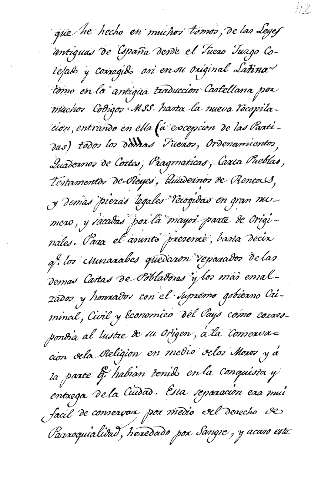 que he hecho en muchos tomos, de las Leyes
antiguas de España desde el Fuero Juzgo Co-
tejado y corregido asi en su original Latino
como en la antigua traduccion Castellana por
muchos Codigos MSS. hasta la nueva recopila-
cion, entrando en ella (a excepcion de las Parti-
das) todos los demas Fueros, Ordenamientos,
Quadernos de Cortes, Pragmaticas, Carta Pueblas,
Testamentos de Reyes, Quadernos de Rentas,
y demas piezas legales recogidas en gran nu-
mero, y sacadas por la mayor parte de Origi-
nales. Para el asunto presente, basta decir
q.e los Muzarabes quedaron separados de las
demas Castas de Pobladores y los mas ensal-
zados y honrados con el Supremo gobierno Cri-
minal, Civil y Economico del Pays como corres-
pondia al lustre de su Origen, á la Conserva-
cion de la Religion en medio de los Moros, y á
la parte q.e habian tenido en la conquista y
entrega de la Ciudad. Esta separacion era mui
facil de conservar por medio del derecho de
Parroquialidad, heredado por Sangre, y acaso este